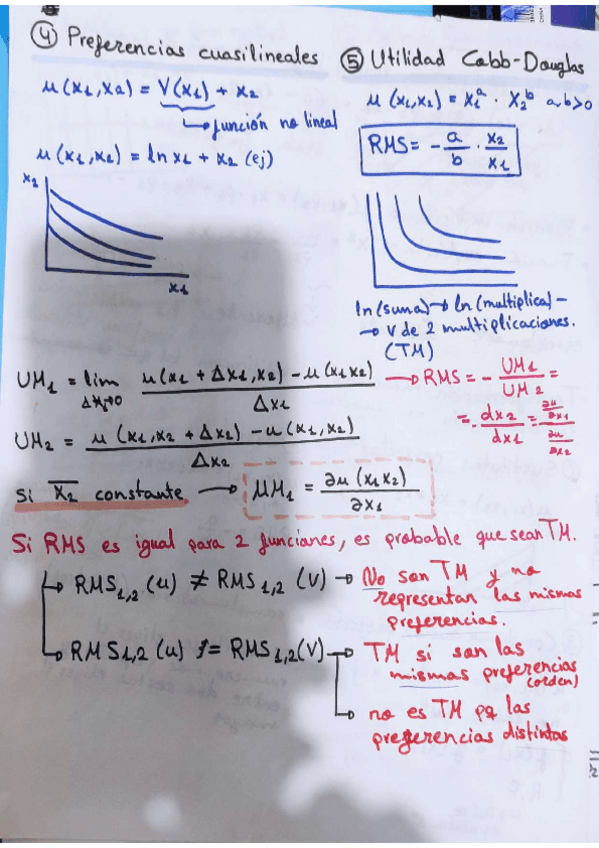 ④ Preferencias cuasilineales
u(x₁,xa) = V(x₁) + x₂
↳ función no lineal
u(x₁,x₂) = ln x₁ + x₂ (ej)
x₂
x₁
⑤ Utilidad Cobb-Douglas
u(x₁,x₂) = x₁ᵃ · x₂ᵇ a,b>0
RMS = - a/b · x₂/x₁
ln(suma) → ln(multiplica) -
→ V de 2 multiplicaciones.
(TM)
UM₁ = lim Δx₁→0 (u(x₁ + Δx₁,x₂) - u(x₁x₂))/Δx₁ → RMS = - UM₁/UM₂ =
= - dx₂/dx₁ = (∂u/∂x₁)/(∂u/∂x₂)
UM₂ = (u(x₁,x₂ + Δx₂) - u(x₁,x₂))/Δx₂
si x̄₂ constante → UM₁ = ∂u(x₁x₂)/∂x₁
Si RMS es igual para 2 funciones, es probable que sean TM.
↳ RMS₁,₂ (u) ≠ RMS₁,₂ (V) → No son TM y no
representan las mismas
preferencias.
↳ RMS₁,₂ (u) = RMS₁,₂(V) → TM si son las
mismas preferencias
(orden)
↳ no es TM pq las
preferencias distintas